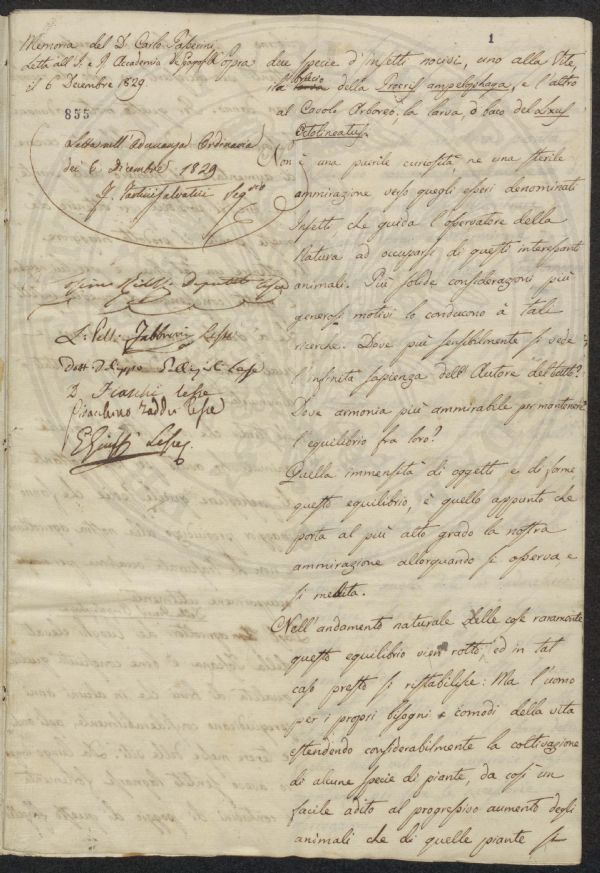 1
Memoria del D. Carlo Passerini
Letta all' I. e R. Accademia de' Georgofili
il 6 Decembre 1829.
855
Letta nell' Adunanza Ordinaria
dei 6. Dicembre 1829
Seg.rio
Sopra due specie d'insetti nocivi, uno alla Vite,
della Procris ampelophaga, e l'altro
al Cavolo Arboreo, la larva o baco del Lixus
Octolineatus.
Non è una puerile curiosità, ne una sterile
ammirazione verso quegli esseri denominati
Insetti che guida l'osservatore della
Natura ad occuparsi di questi interessanti
animali. Più solide considerazioni più
generosi motivi lo conducono à tale
ricerche. Dove più sensibilmente si vede
l'infinita sapienza dell' Autore del tutto?
Dove armonia più ammirabile per mantenere
l'equilibrio fra loro?
Quella immensità di oggetti, e di forme
questo equilibrio, è quello appunto che
porta al più alto grado la nostra
ammirazione allorquando si osserva e
si medita.
Nell' andamento naturale delle cose raramente
questo equilibrio vien rotto, ed in tal
caso presto si ristabilisce: Ma l'uomo
per i propri bisogni e comodi della vita
estendendo considerabilmente la coltivazione
di alcune specie di piante, da così un
facile adito al progressivo aumento degli
animali che di quelle piante si